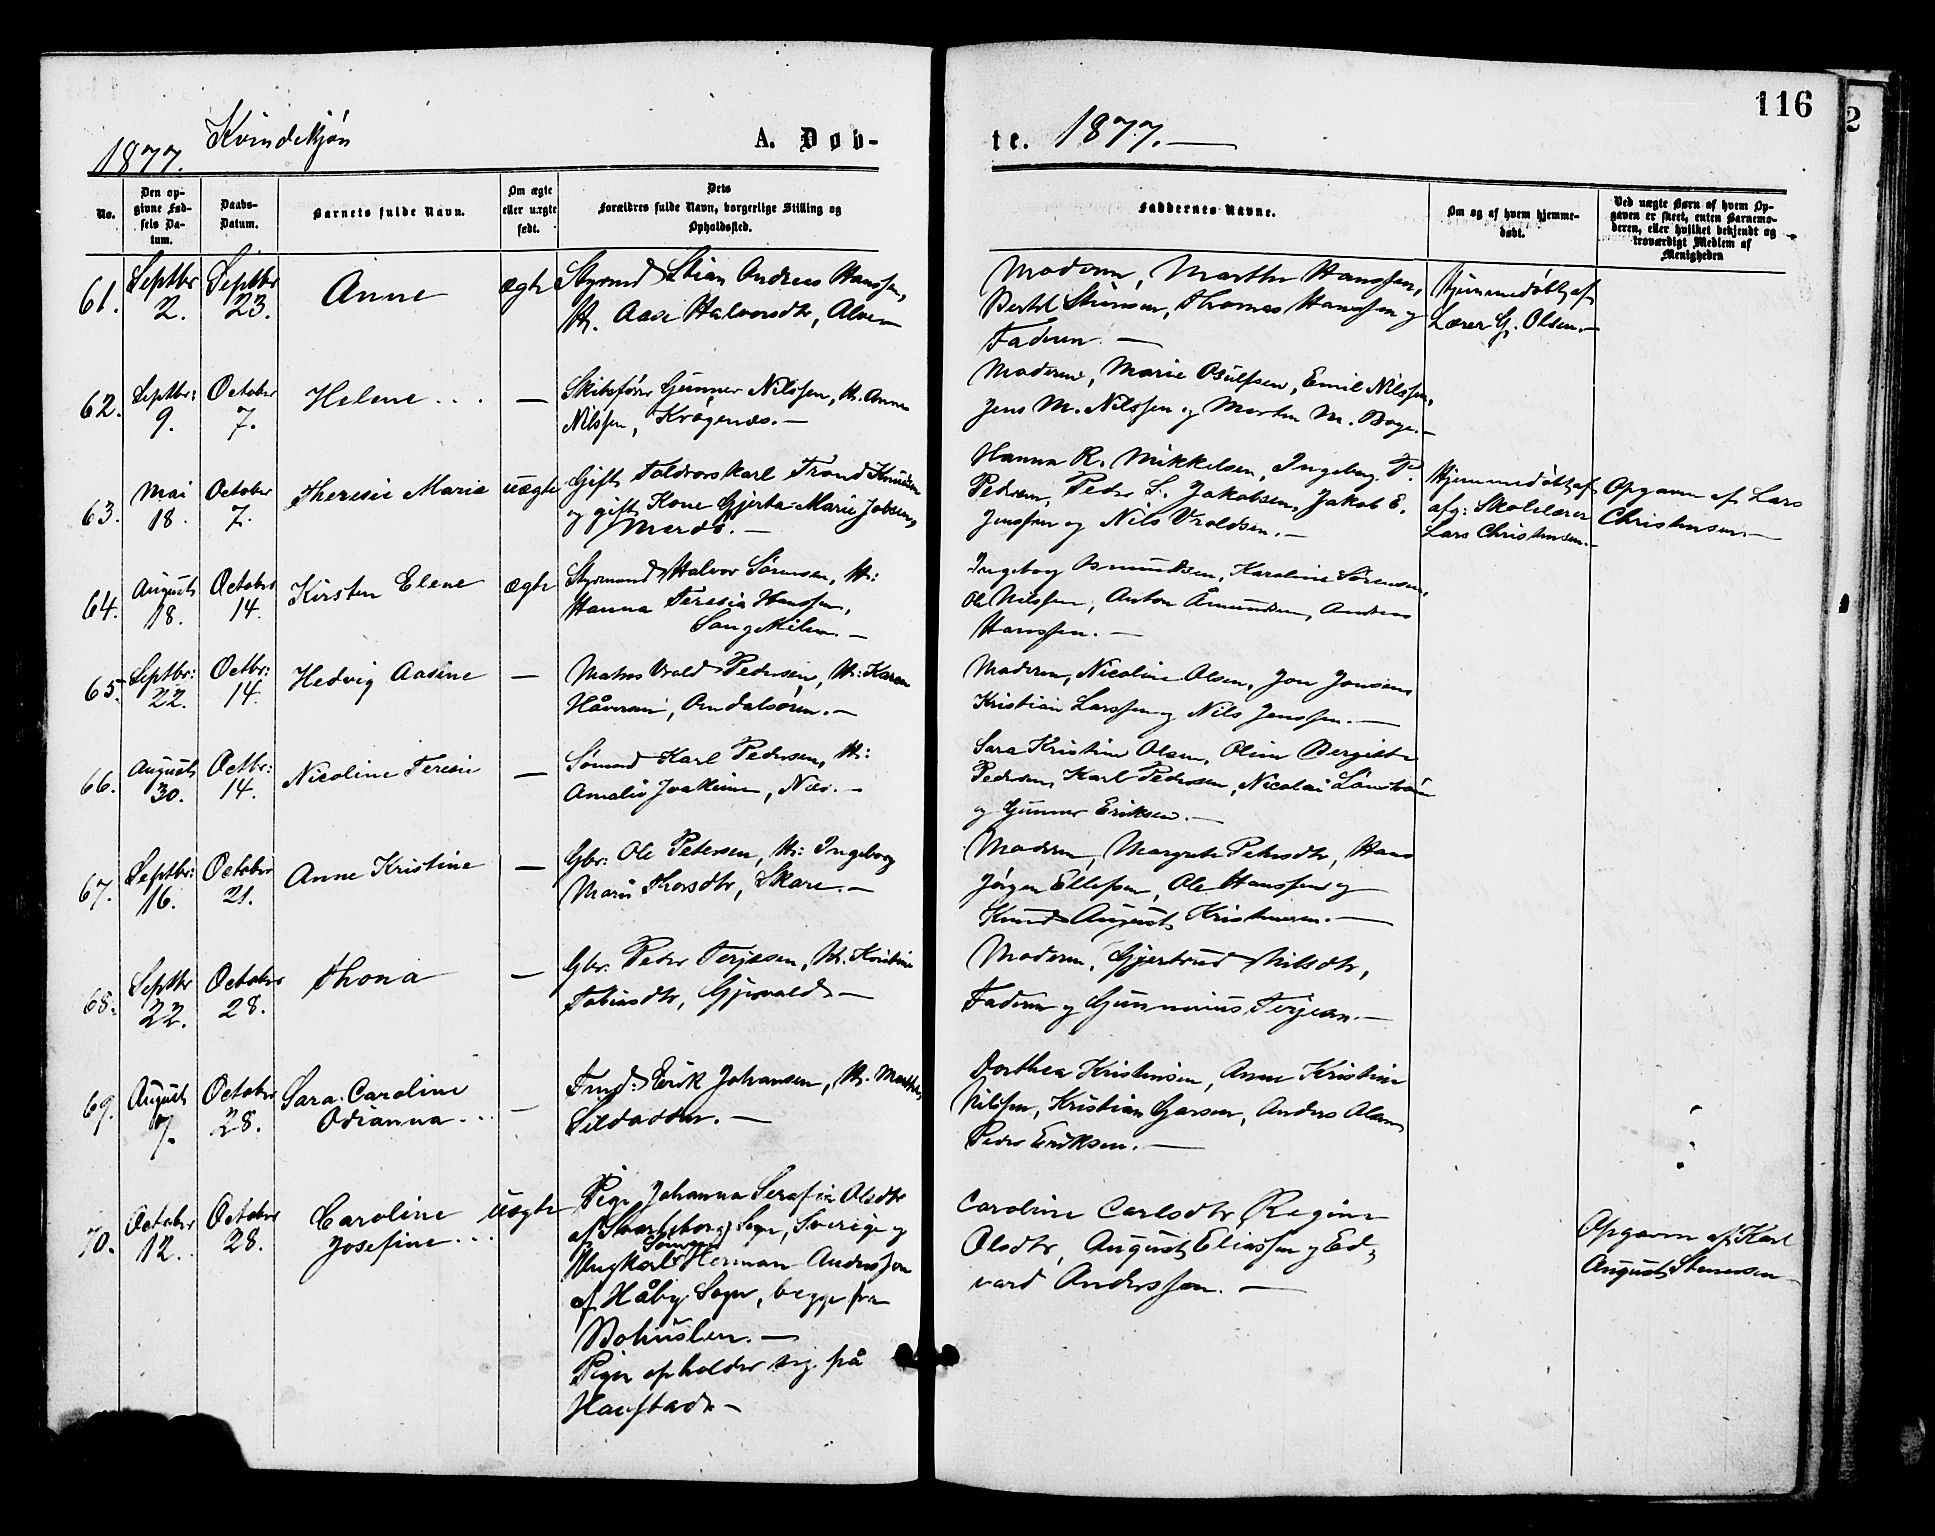 116
2
1877. Kvindekjøn
A. Døb-
te. 1877.—
No.
Den op-
givne Fød-
sels Da-
tum.
Daabs-
Datum.
Barnets fulde Navn.
Om ægte
eller uægte
født.
Dets
Forældres fulde Navn, borgerlige Stilling og
Opholdssted.
Faddernes Navne.
Om og af hvem hjemme-
døbt.
Ved uægte Børn af hvem Op-
gaven er skeet, enten Barnemo-
deren, eller hvilket bekjendt og
troværdigt Medlem af
Menigheden
61.
Septbr
2.
Septbr
23.
Anne
ægte
Styrmd Stian Andreas Hanssen,
H. Aase Halvorsdtr, Alve—
Moderen, Marthe Hanssen,
Bertel Thomas Hanssen og
Faderen.—
Hjemmedøbt af
Lærer G. Olsen.—
62.
Septbr:
9.
October
7.
Helene...
—
Skibsfører Gunner Nilssen, H. Anne
Nilssen, Krøgenæs.—
Moderen, Marie Osulfsen, Emil Nilssen,
Jens M. Nilssen og Morten M. Boye.—
63.
Mai
18.
October
7.
Theresie Marie
uægte
Gift Toldvorskarl Trond Knudsen
og gift Kone Gjerta Marie Jobsen,
Merdø.—
Hanna R. Mikkelsen, Ingeborg P.
Pedersen, Peder S. Jakobsen, Jakob E.
Jenssen og Nils Vroldsen.—
Hjemmedøbt af
afg: Skolelærer
Lars Christensen.—
Opgaven af Lars
Christensen.—
64.
August
18.
October
14.
Kirsten Elene
ægte
Styrmand Halvor Sørensen, H:
Hanna Teresia Hanssen,
Sangekilen.—
Ingeborg Osmundsen, Karoline Sørensen,
Ole Nilssen, Anton Åmundsen, Andreas
Hanssen.—
65.
Septbr:
22.
Octbr:
14.
Hedvig Aasine
—
Matros Vrold Pedersen, H: Karen
Håversen, Omdalsøren.—
Moderen, Nicoline Olsen, Jon Jonsen,
Kristian Larssen og Nils Jenssen.—
66.
August
30.
Octbr:
14.
Nicoline Teresie
—
Sømand Karl Pedersen, H:
Amalie Joakimsen, Næs.—
Sara Kristine Olsen, Oline Bergitte
Pedersen, Karl Pedersen, Nicolai
og Gunner Eriksen.—
67.
Septbr:
16.
October
21.
Anne Kristine
—
Gbr: Ole Petersen, H: Ingeborg
Marie Thorsdtr, Skare.—
Moderen, Margrete Petersdtr, Hans
Jørgen Ellefsen, Ole Hanssen og
Knud August Kristensen.—
68.
Septbr
22.
October
28.
Thona
—
Gbr. Peder Terjesen, H. Kristine
Tobiasdtr, Gjervold.—
Moderen, Gjertrud Nilsdtr,
Faderen og Gunnarius Terjesen.—
69.
August
7.
October
28.
Sara Caroline
Odianna...
—
Tmd: Erik Johansen, H. Marthe,
Sildodden.—
Dorthea Kristensen, Anne Kristine
Nilssen, Kristian Garsen, Anders Olsen,
Peder Eriksen.—
70.
October
12.
October
28.
Caroline
Josefine...
uægte
Pige Johanna Serafia Olsdtr
af Svarteborg Sogn, Sverige og
Ungkarl Sømand Herman Anderssen
af Håby Sogn, begge fra
Bohuslen.—
Pigen opholder sig på
Havstad.—
Caroline Carlsdtr, Regine
Olsdtr, August Eliassen og Ed-
vard Anderssen.—
Opgaven af Karl
August Stenersen—